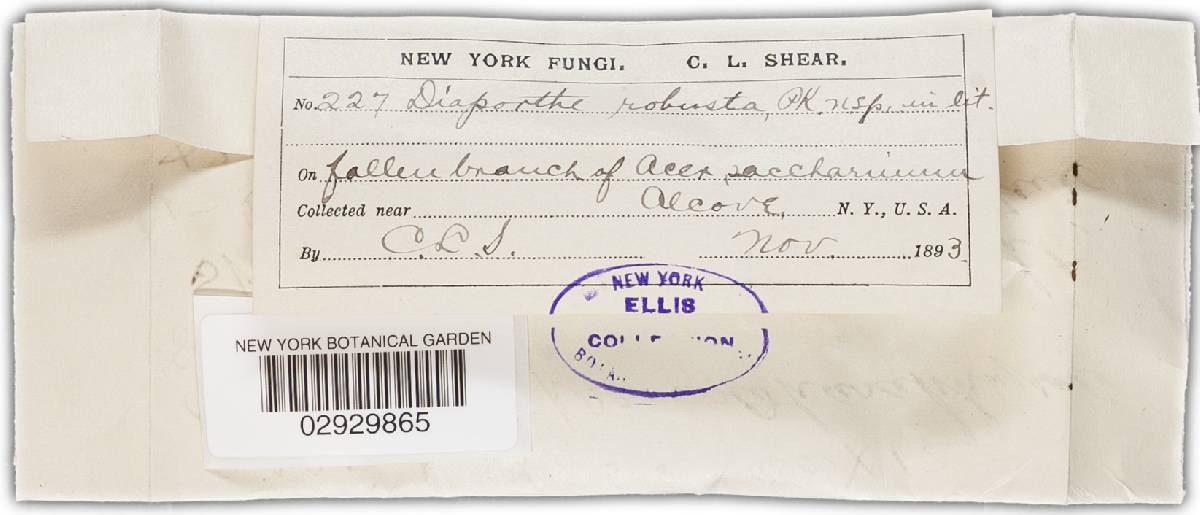 NEW YORK FUNGI. C. L. SHEAR.
No. 227 Diaporthe robusta, PK. n.sp. in lit.
On fallen branch of Acer saccharinum
Collected near Alcove, N. Y., U. S. A.
By C.L.S. Nov. 1893
NEW YORK
ELLIS
NEW YORK BOTANICAL GARDEN
02929865